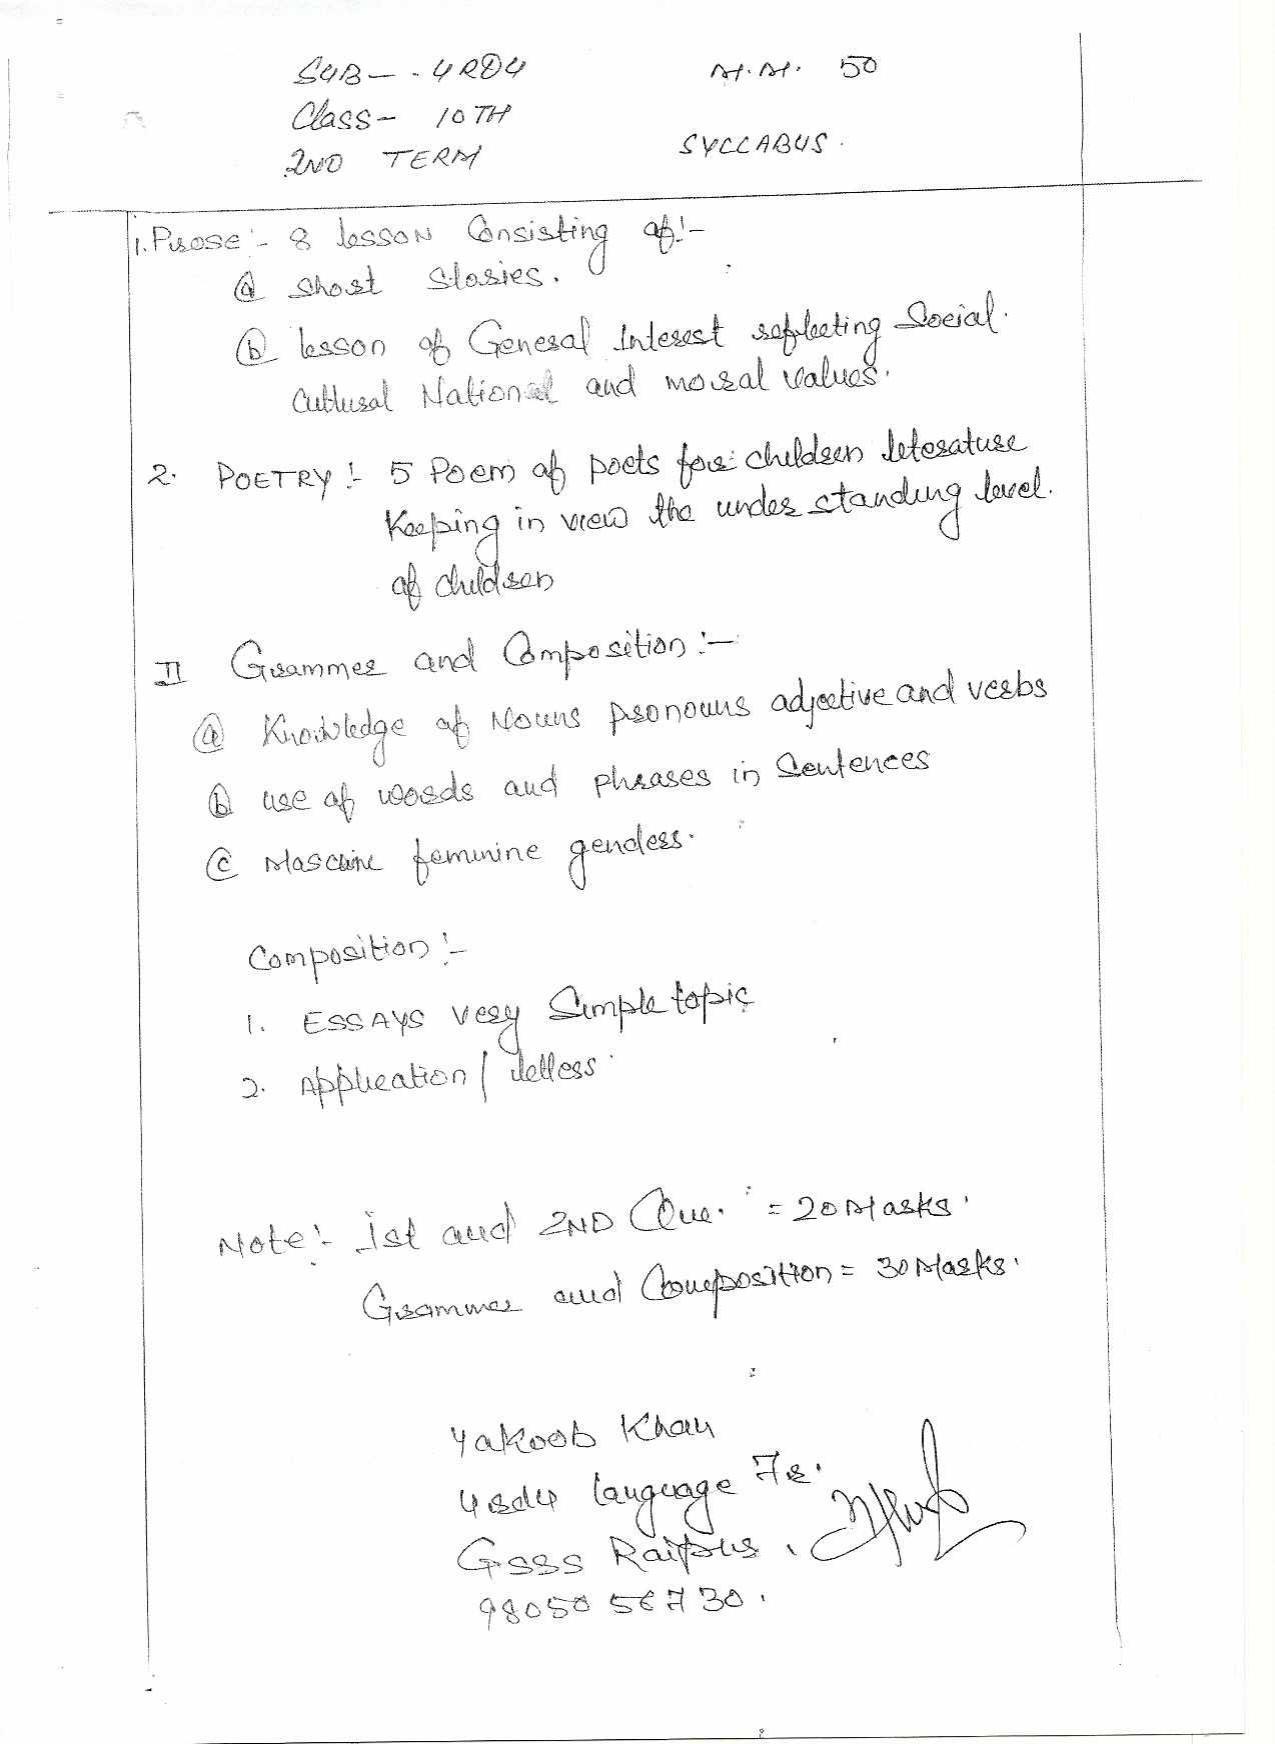 SUB - - URDU M.M. 50
Class - 10TH
2ND TERM SYLLABUS.
1. Prose :- 8 lesson Consisting of :-
(a) Short Stories.
(b) lesson of General Interest reflecting Social.
Cultural National and moral values.
2. POETRY :- 5 Poem of poets for children leterature
Keeping in view the under standing level.
of children
II Grammer and Composition :-
(a) Knowledge of Nouns pronouns adjective and verbs
(b) use of words and phrases in Sentences
(c) Mascline feminine genders.
Composition :-
1. ESSAYS very Simple topic
2. Application / letters.
Note :- Ist and 2ND Que. = 20 Marks.
Grammer and Composition = 30 Marks.
Yakoob Khan
Urdu language Tr.
GSSS Raipur.
98050 56730.